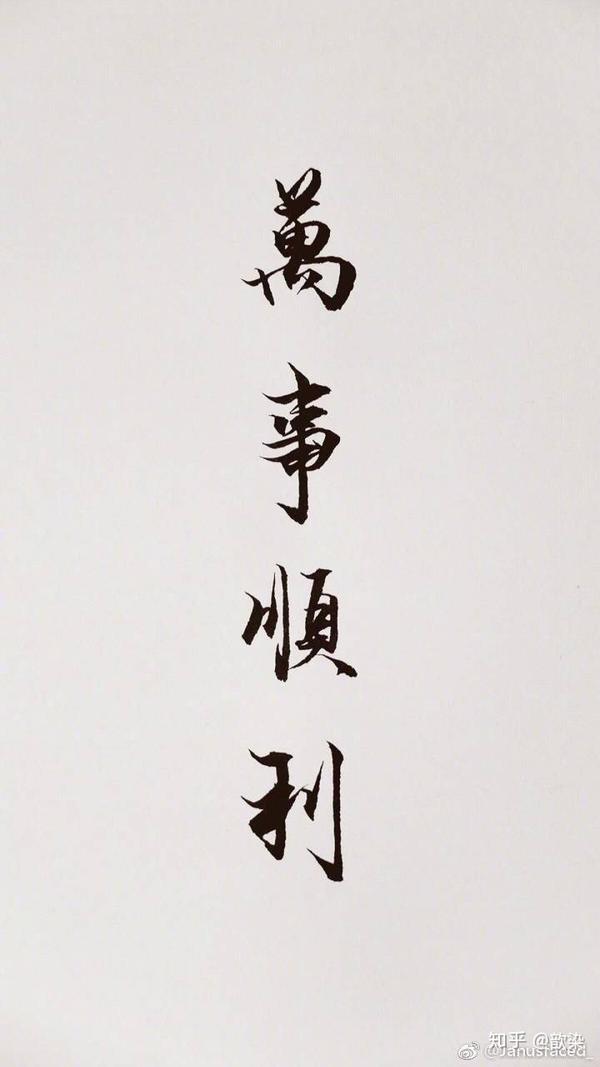 萬事順利
知乎 @歆染
@Janusfaced_